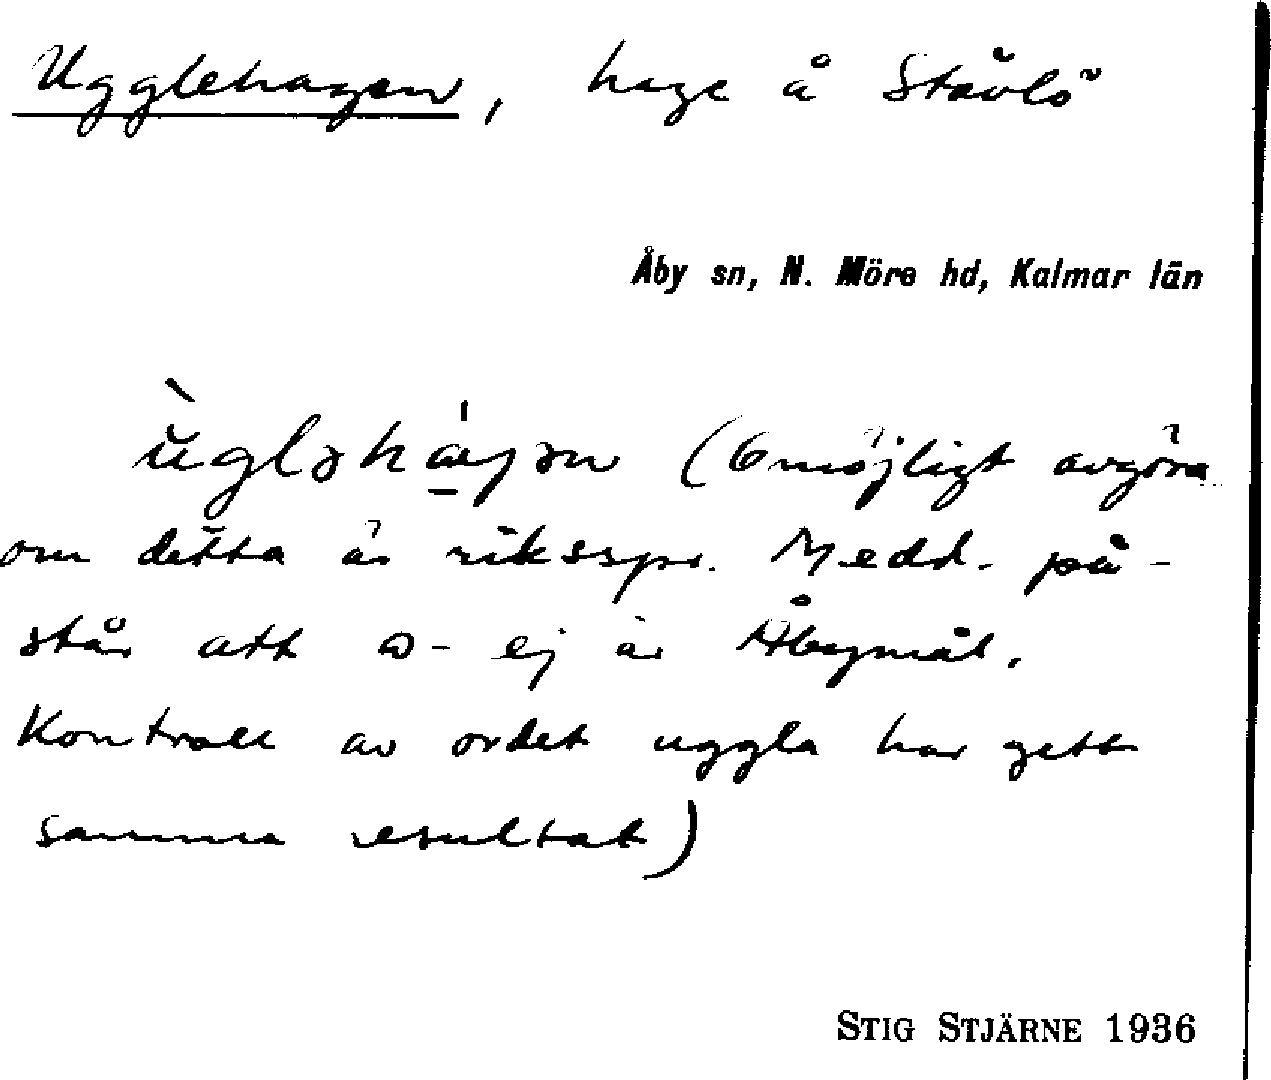 Ugglehagen, hage å Stävlö
Åby sn, N. Möre hd, Kalmar län
ùgləhàgən (Omöjligt avgöra
om detta är riksspr. Medd. på-
står att ω- ej är Åbymål.
Kontroll av ordet uggla har gett
samma resultat)
STIG STJÄRNE 1936